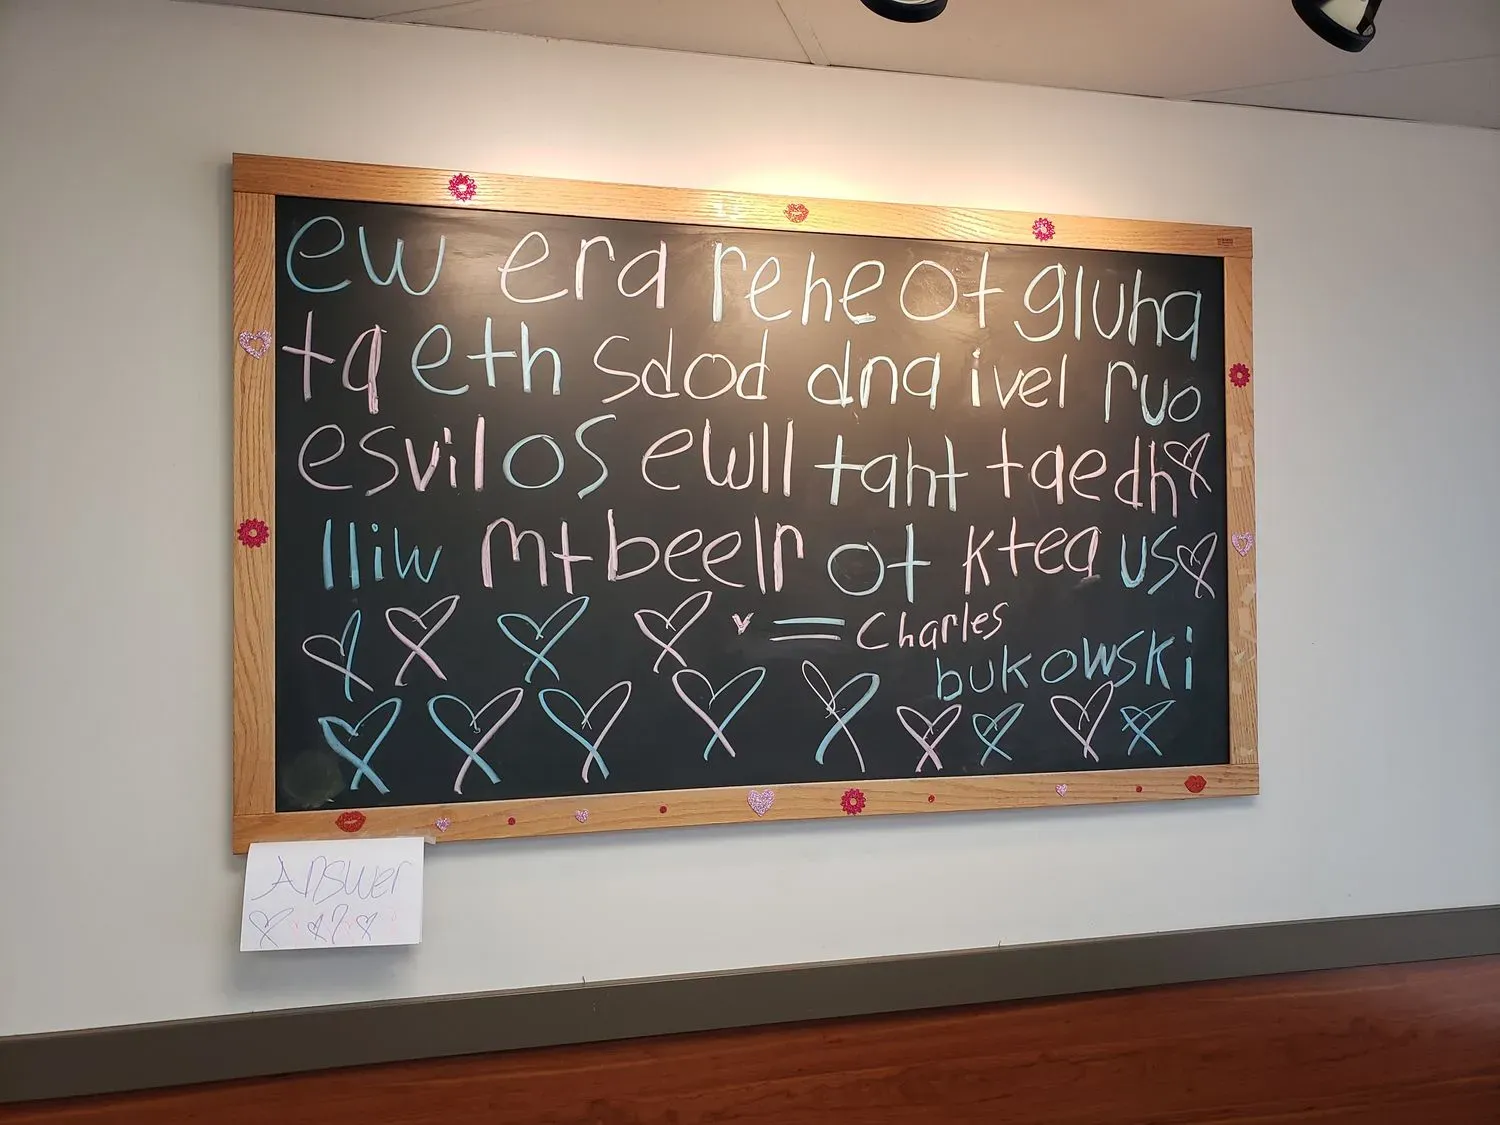 ew era rehe ot gluha
ta eth sdod dna ivel ruo
esvil os ewll taht taedh
lliw mtbeelr ot ktea us
= Charles
bukowski
Answer